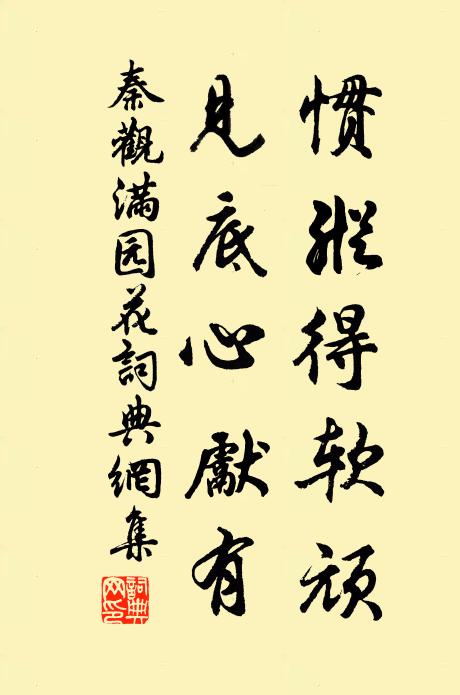 慣縱得軟頑
見底心獻有
秦觀滿园花詞典網集
詞典
网印